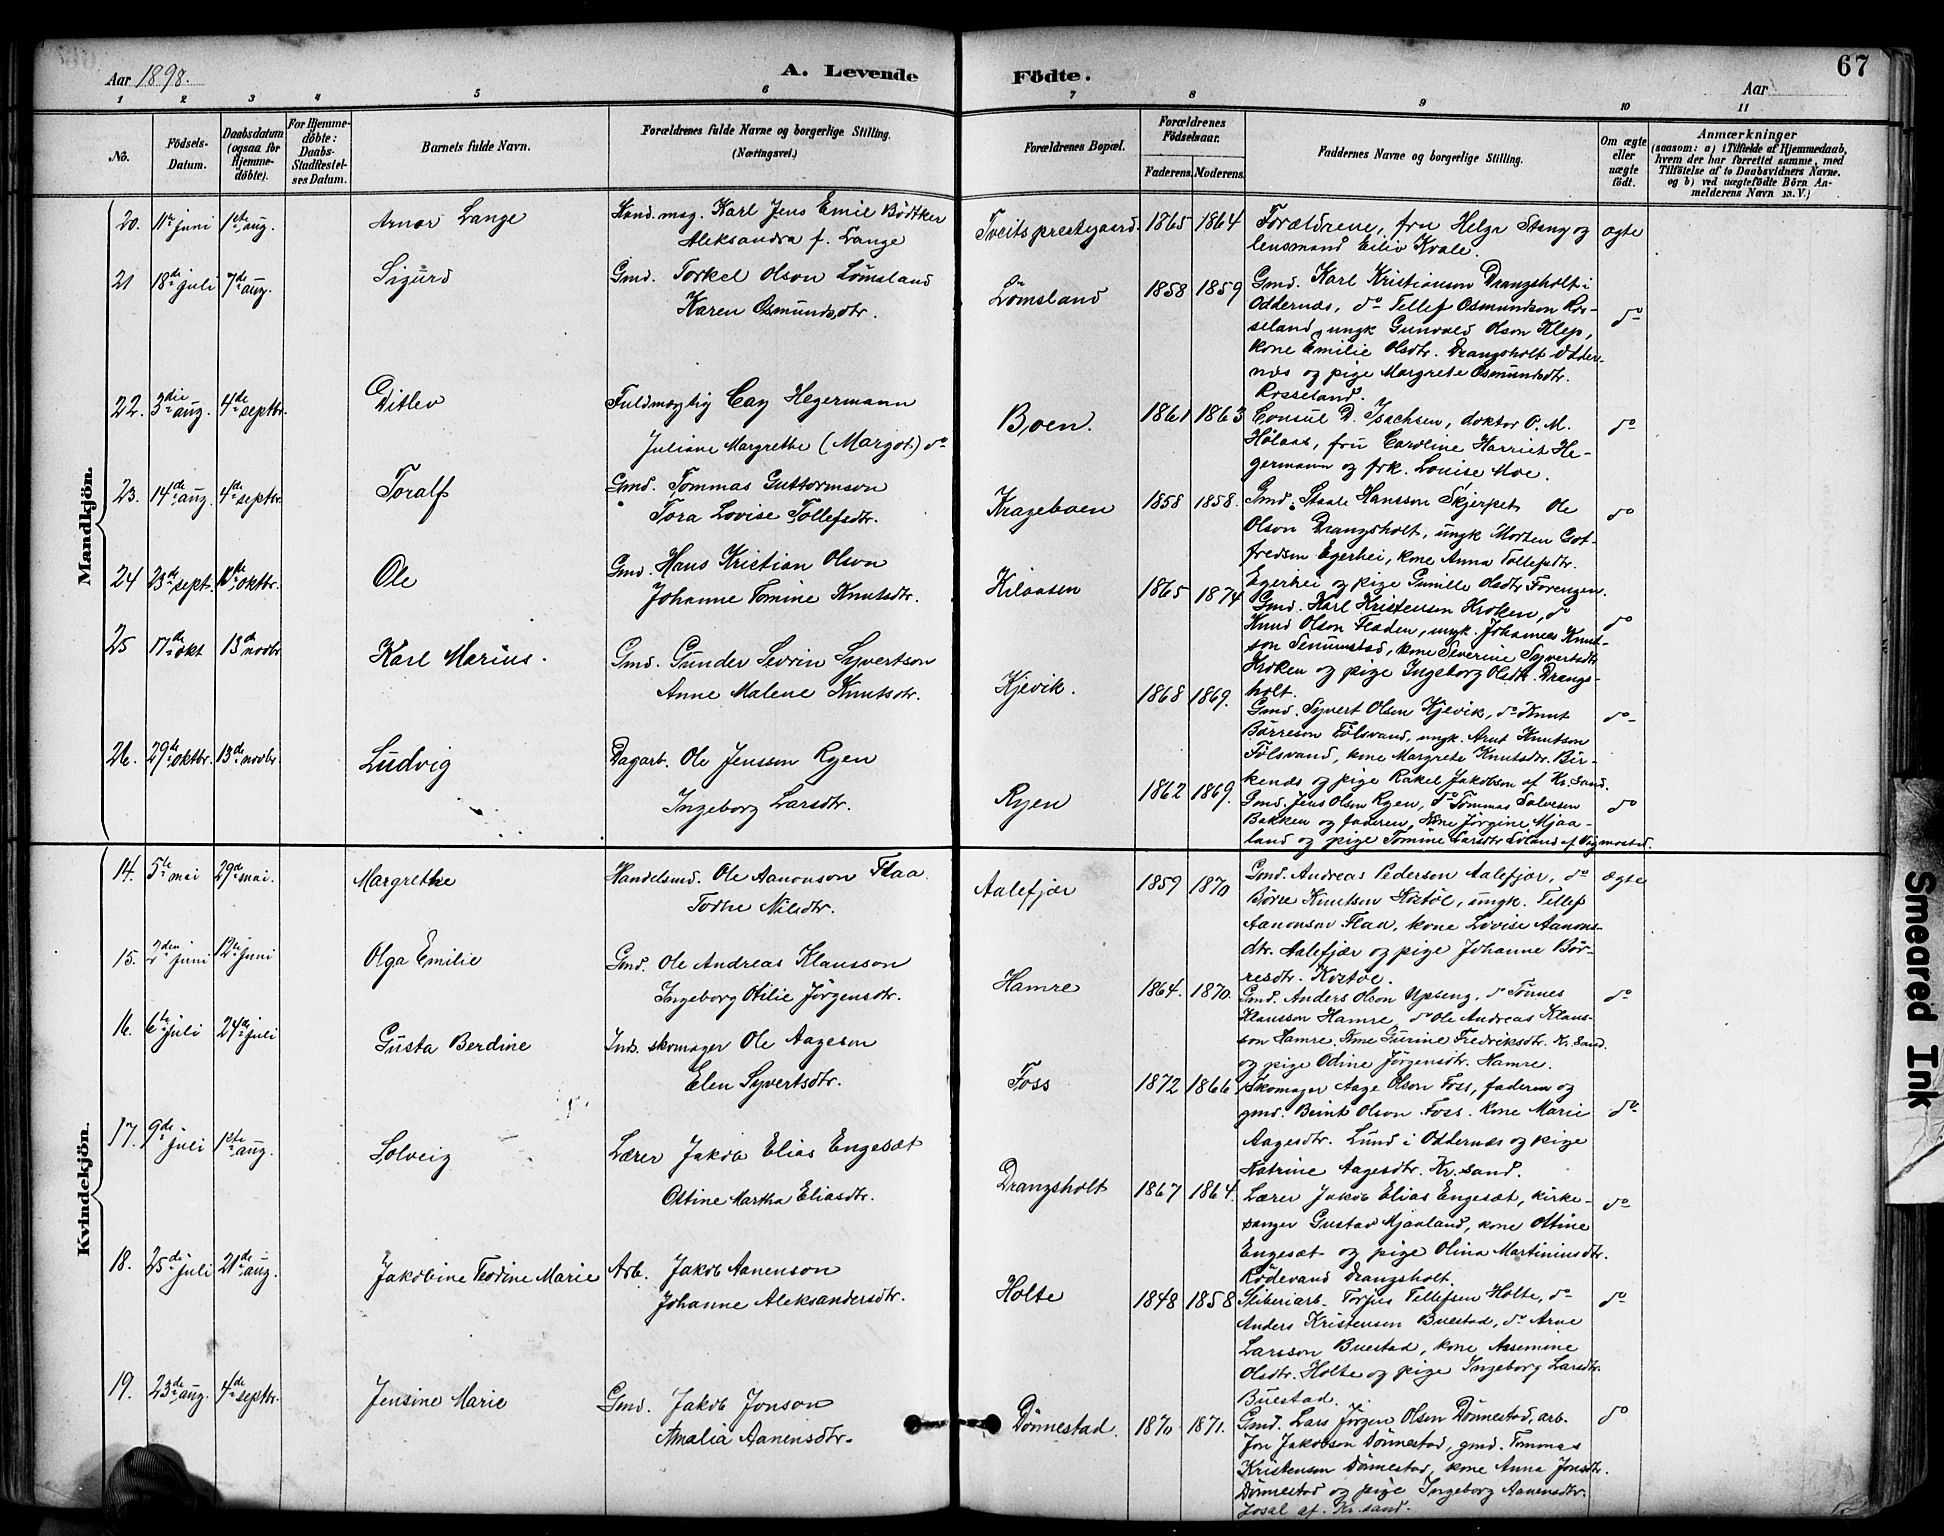 Aar 1898.
A. Levende
Födte.
67
Aar
1 2 3 4 5 6 7 8 9 10 11
No.
Födsels-Datum.
Daabsdatum (ogsaa for Hjemme-döbte).
For Hjemme-döbte: Daabs-Stadfestel-ses Datum.
Barnets fulde Navn.
Forældrenes fulde Navne og borgerlige Stilling. (Næringsvei.)
Forældrenes Bopæl.
Forældrenes Födselsaar.
Faderens. Moderens.
Faddernes Navne og borgerlige Stilling.
Om ægte eller uægte födt.
Anmærkninger
(saasom: a) i Tilfælde af Hjemmedaab, hvem der har forrettet samme, med Tilföielse af to Daabsvidners Navne. og b) ved uægtefödte Börn An-melderens Navn m. V.)
Mandkjön.
20. 11te juni 1ste aug. Arnor Lange Kand. mag. Karl Jens Emil Bödtker
Aleksandra f. Lange
Tveits prestegaard. 1865 1864 Forældrene, fru Helga Stang og ægte
lensmand Eiliv Kvale.
21 18de juli 7de aug. Sigurd Gmd. Torkel Olson Lömsland
Karen Osmundsdtr.
Lömsland 1858 1859 Gmd. Karl Kristianson Drangsholt i
Oddernæs, do Tellef Osmundson Ros-
seland, ungk Gunvald Olson Klep, do
kone Emilie Olsdtr. Drangsholt Odder-
næs og pige Margrete Osmundsdtr.
Rosseland.
22. 3die aug. 4de septbr. Ditlev Fuldmægtig Cay Hegermann
Juliane Margrethe (Margot) do
Boen. 1861 1863 Consul D. Isachsen, doktor O. M. do
Holaas, fru Caroline Harriet He-
germann og frk. Louise Moe.
23. 14de aug. 4de septbr. Toralf Gmd. Tommas Guttormson
Tora Lovise Tollefsdtr.
Krageboen 1858 1858. Gmd. Staale Hansson Skjerpet, Ole do
Olson Drangsholt, ungk Morten Got-
fredsen Egerhei, kone Anna Tollefsdtr.
Egerhei og pige Gunille Olsdtr
24 23de sept. oktbr. Ole Gmd. Hans Kristian Olson
Johanne Tomine Knutsdtr.
Kilaasen 1865 1874 Gmd. Karl Kristensen Kroken, do do
Knud Olson Fladen, ungk. Johannes Knut-
son Senumstad, kone Severine Syvertsdtr
Kroken og pige Ingeborg Olsdtr. Drangs-
holt.
25 17de okt 13de novbr Karl Marius. Gmd. Gunder Sevrin Syvertson
Anne Malene Knutsdtr.
Kjevik. 1868 1869. Gmd. Syvert Olsen Kjevik, do Knut do
Börreson Fölsvand, ungk. Arnt Knutson
Fölsvand, kone Margrete Knutsdtr. Bir-
kenæs og pige Rakel Jakobson af Kr.sand.
26. 29de oktbr. 13de novbr. Ludvig Dagarb. Ole Jensson Ryen
Ingeborg Larsdtr.
Ryen 1862 1869. Gmd. Jens Olsen Ryen, do Tommas Salvesen do
Bakken og faderen, kone Jörgine Mjaa-
land og pige Tomine Larsdtr
Kvindekjön.
14. 5te mai 29de mai. Margrethe Handelsmd. Ole Aanonson Flaa.
Tothe Nilsdtr.
Aalefjær 1859 1870 Gmd. Andreas Pedersen Aalefjær, do ægte
Börre Knutsen Kostöl, ungk. Tellef
Aanonson Flaa, kone Lovise Aanons-
dtr. Aalefjær og pige Johanne Bör-
resdtr. Kostöl.
15. 2den juni 12te juni Olga Emilie Gmd. Ole Andreas Klausson
Ingeborg Otilie Jörgensdtr.
Hamre 1864. 1870. Gmd. Anders Olson Upseng, do Tönnes do
Klausson Hamre, do Ole Andreas Klaus-
son Hamre. kone Gurine Fredriksdtr. Kr.sand
og pige Odine Jörgensdtr. Hamre.
16. 6te juli 24de juli Gusta Berdine Inds. skomager Ole Aageson
Elen Syvertsdtr.
Foss 1872 1866 Skomager Aage Olson Foss, faderen og
gmd. Beint Olson Foss. Kone Marie do
Aagesdtr. Lund i Oddernæs og pige
Katrine Aagesdtr. Kr.sand.
17. 9de juli 1ste aug. Solveig Lærer Jakob Elias Engesæt
Ottine Martha Eliasdtr.
Drangsholt 1867 1864. Lærer Jakob Elias Engesæt, kirke- do
sanger Gustav Mjaaland, kone Ottine
Engesæt og pige Olina Martiniusdtr.
Rödevand Drangsholt.
18. 25de juli 21de aug. Jakobine Teodine Marie Arb. Jakob Aanenson
Johanne Aleksandersdtr.
Holte 1848 1858 Sliberiarb. Torjus Tellefsen Holte, do do
Anders Kristensen Buestad, do Arne
Larsson Buestad, kone Assemine
Olsdtr. Holte og pige Ingeborg Larsdtr.
Buestad.
19. 23de aug. 4de septbr. Jensine Marie Gmd. Jakob Jonson
Amalia Aanensdtr.
Dönnestad. 1870 1871. Gmd. Lars Jörgen Olsen Dönnestad, arb. do
Jon Jakobson Dönnestad, gmd. Tommas
Kristenson Dönnestad, kone Anna Jonsdtr.
Dönnestad og pige Ingeborg Aanensdtr.
Josal af Kr.sand.
Smeared Ink